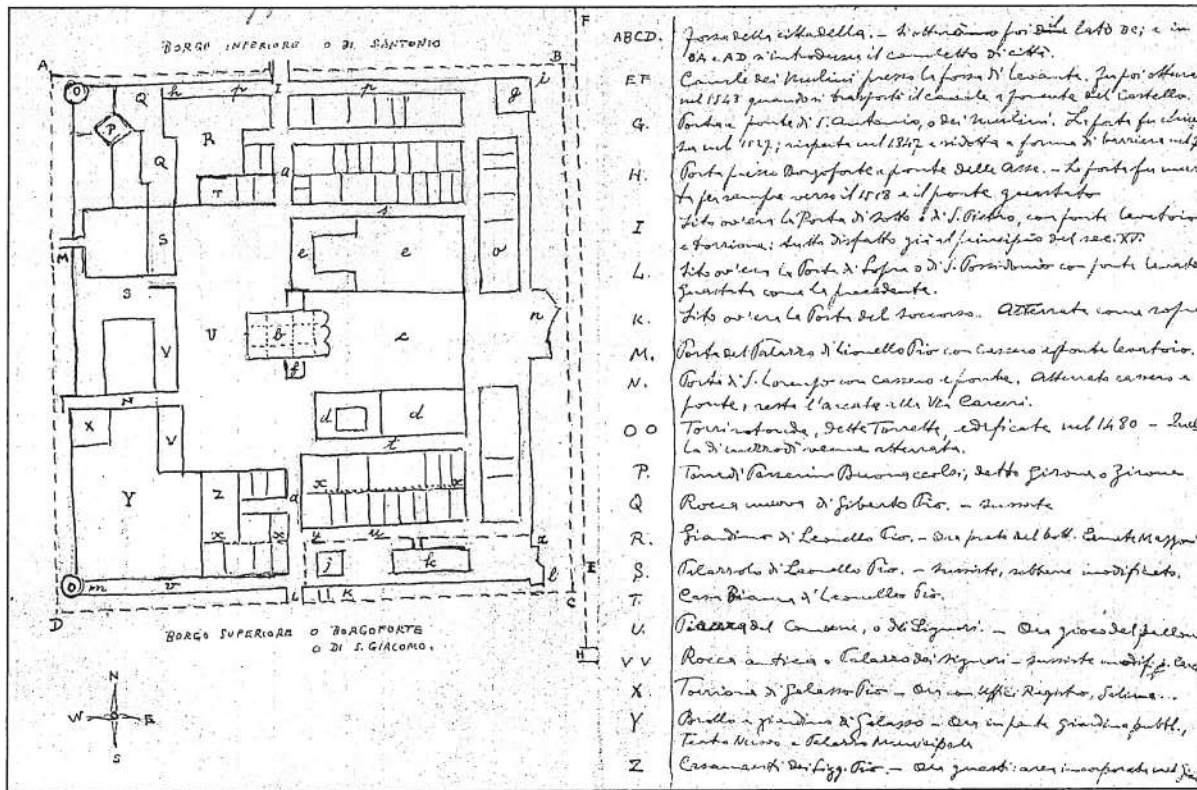 BORGO INFERIORE O DI S. ANTONIO
A
B
F
O
Q
h
p
I
p
i
g
P
R
Q
a
T
s
S
e
e
o
M
S
U
b
c
n
V
f
N
d
d
X
V
t
Z
a
x
x
Y
x
x
y
u
z
j
k
l
O
m
v
L
K
C
E
D
H
BORGO SUPERIORE O BORGOFORTE
O DI S. GIACOMO.
N
W
E
S
ABCD. fossa della cittadella. — lato DC; e in
BA e AD s'introdusse il canaletto di città.
EF Canale dei Mulini presso la fossa di levante. Fu poi
nel 1543 quando si trasportò il canale a ponente del Castello.
G. Porta e ponte di S. Antonio, o dei Mulini. La porta fu
nel 1527; riaperta nel 1847 e ridotta a forma di barriera nel
H. Porta presso Borgoforte e ponte delle Asse. — La porta fu
ta per sempre verso il 1518 e il ponte guastato
I Sito ov'era la Porta di Sotto o di S. Pietro, con ponte levatoio
e torrione: tutto disfatto già al principio del sec. XV.
L. Sito ov'era la Porta di Sopra o di S. Possidonio con ponte
guastata come la precedente.
K. Sito ov'era la Porta del Soccorso. Atterrata come sopra
M. Porta del Palazzo di Lionello Pio con cassero e ponte levatoio.
N. Porta di S. Lorenzo con cassero e ponte. Atterrato cassero e
ponte, resta l'arcata alla Via Carceri.
OO Torri rotonde, dette Torrette, edificate nel 1480 —
la di mezzodì venne atterrata.
P. Torre di Passerino Buonaccolsi, detto Girone o Zirone
Q Rocca nuova di Giberto Pio. — sussiste
R. Giardino di Leonello Pio. — Ora prato del Dott.
S. Palazzolo di Leonello Pio. — sussiste, sebbene modificato.
T. Casa Bianca di Leonello Pio.
U. Piazza del Comune, o dei Signori. — Ora gioco del pallone
VV Rocca antica o Palazzo dei Signori — sussiste
X Torrione di Galasso Pio — Ora con Uffici Registro,
Y Brollo o giardino di Galasso — Ora in parte giardino pubbl.,
Teatro Nuovo e Palazzo Municipale
Z Casamenti dei Sigg. Pio. — Ora